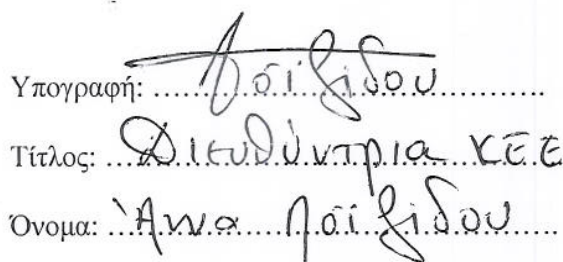 Υπογραφή: Λοϊζίδου
Τίτλος: Διευθύντρια ΚΕΕ
Όνομα: Άννα Λοϊζίδου